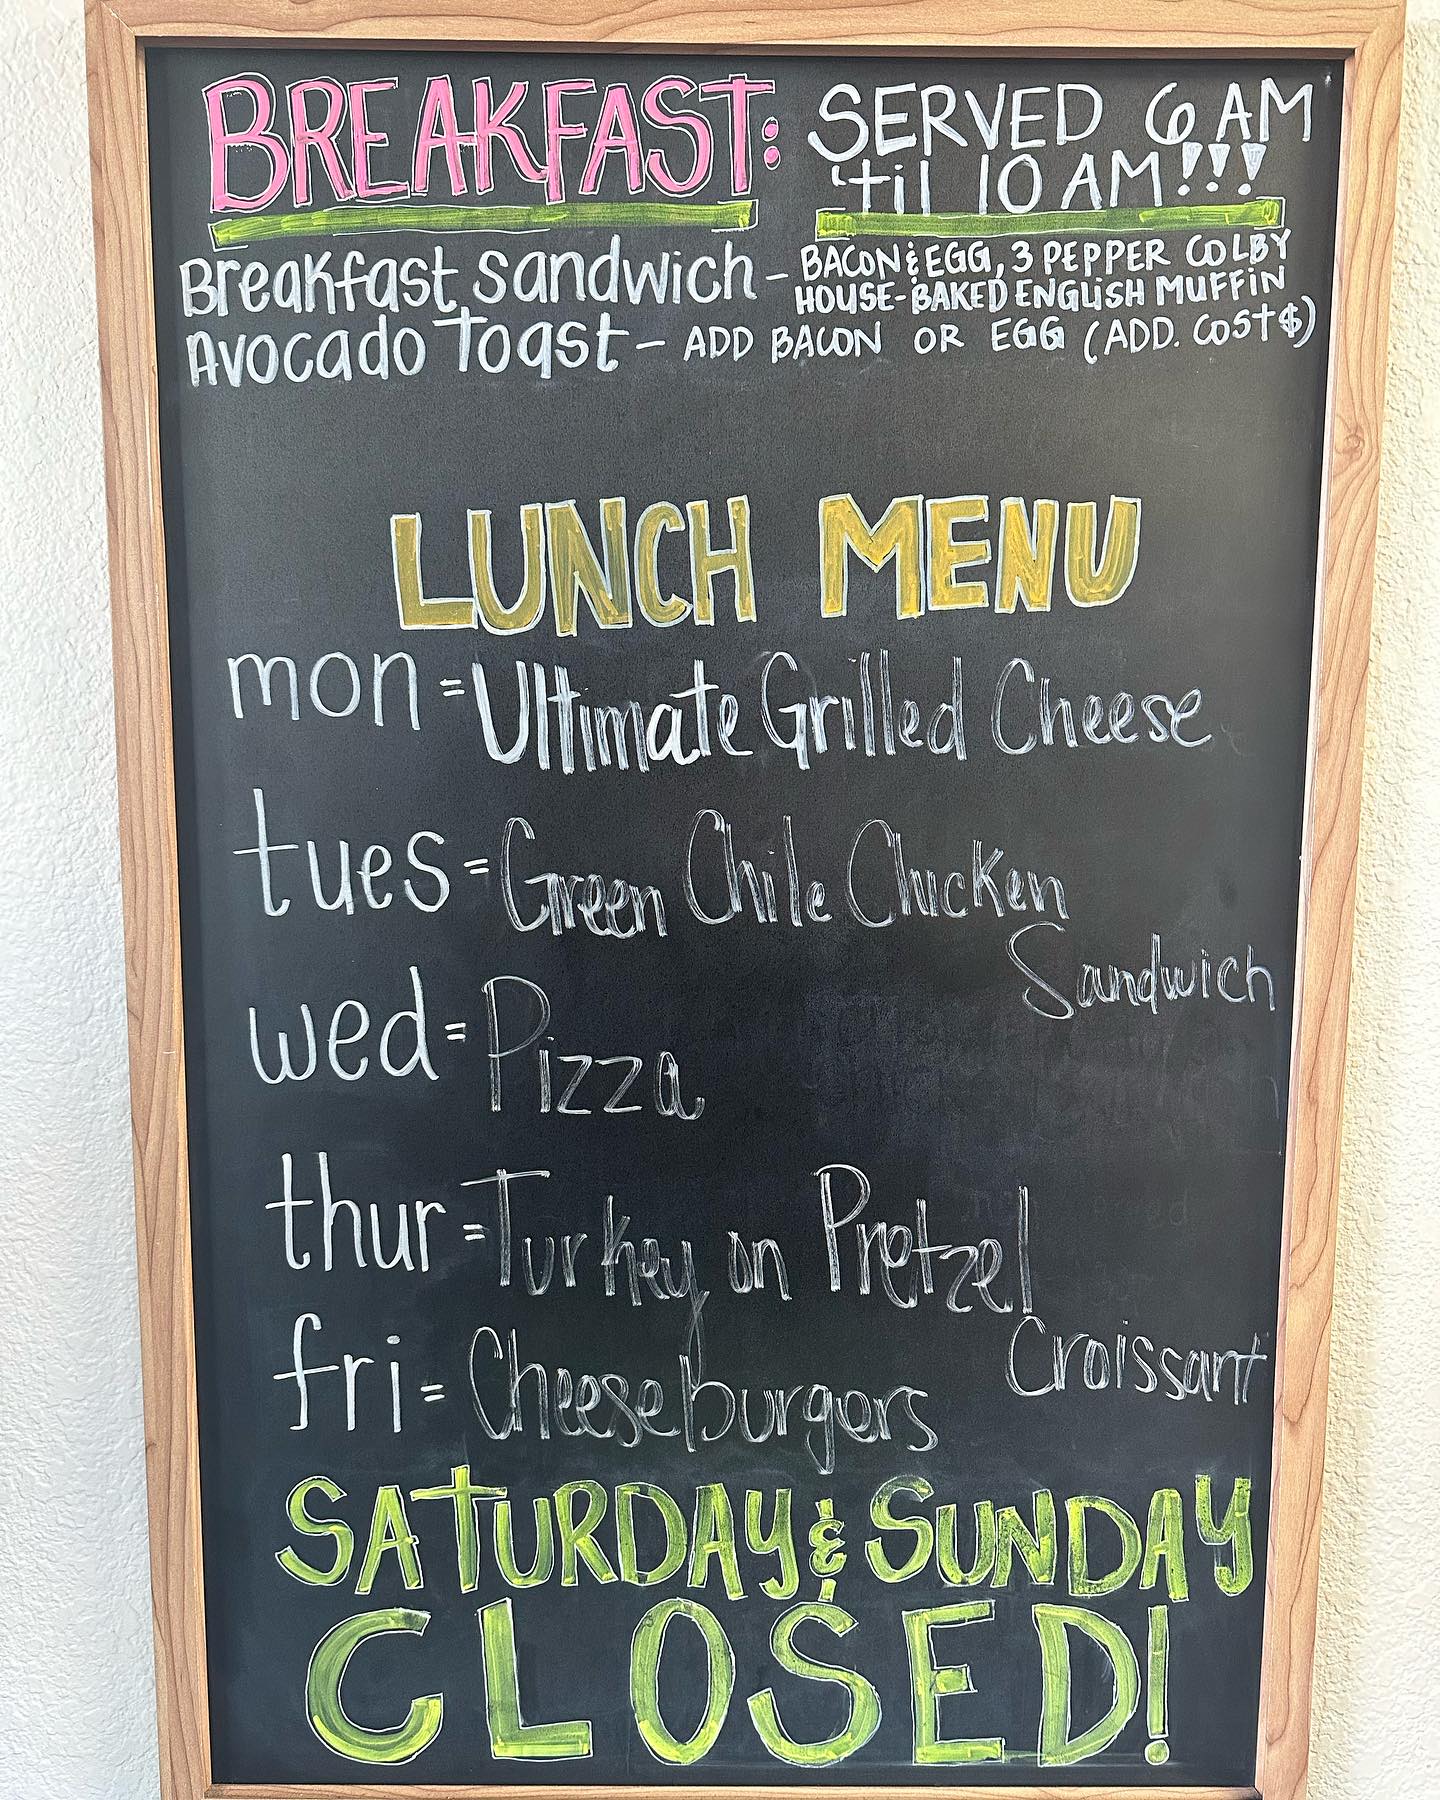 BREAKFAST: SERVED 6 AM
'til 10 AM!!!
Breakfast sandwich - BACON & EGG, 3 PEPPER COLBY
HOUSE-BAKED ENGLISH MUFFIN
Avocado Toast - ADD BACON OR EGG (ADD. COST $)
LUNCH MENU
mon = Ultimate Grilled Cheese
tues = Green Chile Chicken
Sandwich
wed = Pizza
thur = Turkey on Pretzel
Croissant
fri = Cheeseburgers
SATURDAY & SUNDAY
CLOSED!